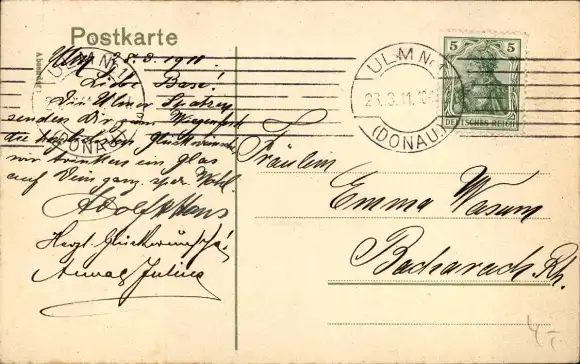 Postkarte
Ulm, 28.3.1911.
Liebe Base!
Die Ulmer Spatzen
senden Dir zum Wiegenfest
die herzlichsten Glückwünsche
wir trinken ein Glas
auf Dein ganz spez. Wohl.
Adolf & Hans
Herzl. Glückwünsche!
Anna & Julius
ULM Nr. 1
(DONAU)
ULM Nr. 1
28.3.11.
(DONAU)
5 5
DEUTSCHES REICH
Fräulein
Emma Wasum
Bacharach Rh.
4,-